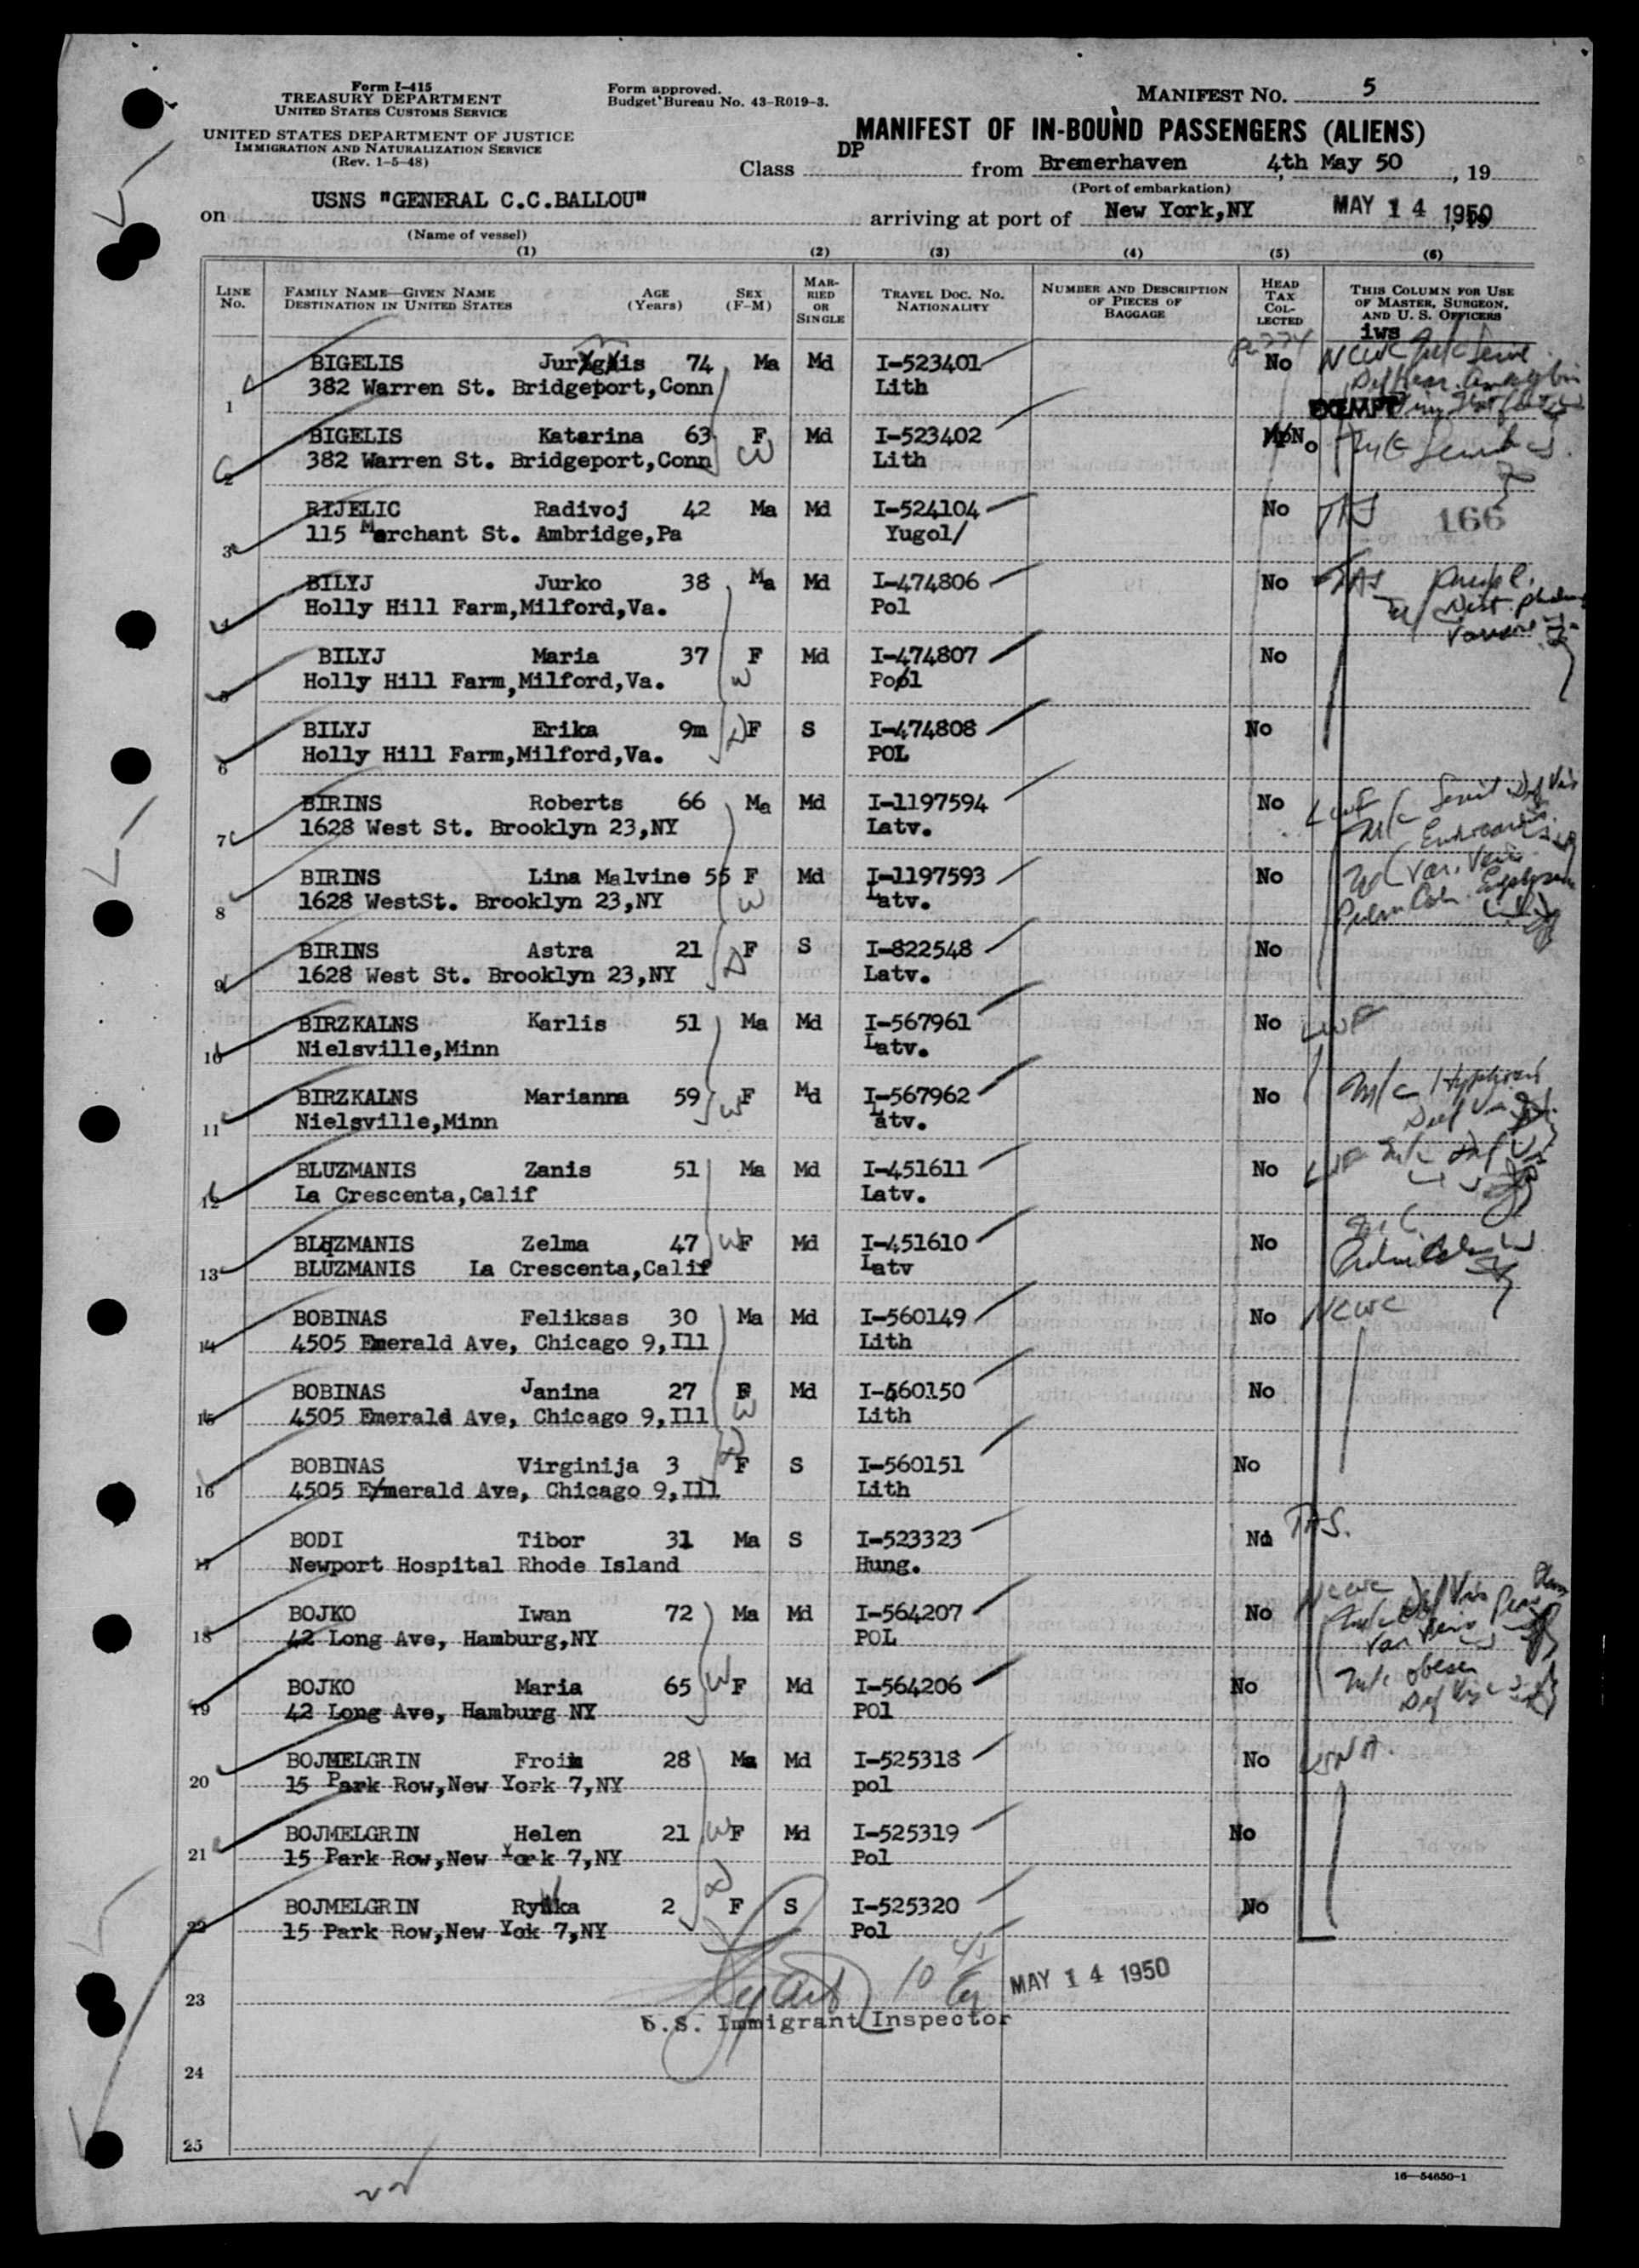 Form I-415
TREASURY DEPARTMENT
UNITED STATES CUSTOMS SERVICE
UNITED STATES DEPARTMENT OF JUSTICE
IMMIGRATION AND NATURALIZATION SERVICE
(Rev. 1-5-48)
Form approved.
Budget Bureau No. 43-R019-3.
MANIFEST NO. 5
MANIFEST OF IN-BOUND PASSENGERS (ALIENS)
Class DP from Bremerhaven 4th May 50, 19
(Port of embarkation)
on USNS "GENERAL C.C.BALLOU" arriving at port of New York,NY MAY 14 1950
(Name of vessel)
(1) (2) (3) (4) (5) (6)
LINE No.
FAMILY NAME—GIVEN NAME
DESTINATION IN UNITED STATES
AGE (Years)
SEX (F-M)
MARRIED OR SINGLE
TRAVEL DOC. NO.
NATIONALITY
NUMBER AND DESCRIPTION OF PIECES OF BAGGAGE
HEAD TAX COLLECTED
THIS COLUMN FOR USE OF MASTER, SURGEON, AND U. S. OFFICERS
iws
1 BIGELIS 74 Ma Md I-523401 No NCWC
382 Warren St. Bridgeport,Conn Lith
EXEMPT
2 BIGELIS Katarina 63 F Md I-523402 No
382 Warren St. Bridgeport,Conn W Lith
3 BIJELIC Radivoj 42 Ma Md I-524104 No TAS 166
115 Marchant St. Ambridge,Pa Yugol/
4 BILYJ Jurko 38 Ma Md I-474806 No TAS
Holly Hill Farm,Milford,Va. Pol
5 BILYJ Maria 37 F Md I-474807 No
Holly Hill Farm,Milford,Va. W Pol
6 BILYJ Erika 9m D F S I-474808 No
Holly Hill Farm,Milford,Va. POL
7 BIRINS Roberts 66 Ma Md I-1197594 No LWF
1628 West St. Brooklyn 23,NY Latv.
8 BIRINS Lina Malvine 55 F Md I-1197593 No
1628 WestSt. Brooklyn 23,NY W Latv.
9 BIRINS Astra 21 F S I-822548 No
1628 West St. Brooklyn 23,NY D Latv.
10 BIRZKALNS Karlis 51 Ma Md I-567961 No LWF
Nielsville,Minn Latv.
11 BIRZKALNS Marianna 59 W F Md I-567962 No M/C
Nielsville,Minn Latv.
12 BLUZMANIS Zanis 51 Ma Md I-451611 No LWF
La Crescenta,Calif Latv.
13 BLUZMANIS Zelma 47 W F Md I-451610 No
BLUZMANIS La Crescenta,Calif Latv
14 BOBINAS Feliksas 30 Ma Md I-560149 No NCWC
4505 Emerald Ave, Chicago 9,Ill Lith
15 BOBINAS Janina 27 F Md I-560150 No
4505 Emerald Ave, Chicago 9,Ill W Lith
16 BOBINAS Virginija 3 D F S I-560151 No
4505 Emerald Ave, Chicago 9,Ill Lith
17 BODI Tibor 31 Ma S I-523323 No TAS.
Newport Hospital Rhode Island Hung.
18 BOJKO Iwan 72 Ma Md I-564207 No NCWC
42 Long Ave, Hamburg,NY POL
19 BOJKO Maria 65 W F Md I-564206 No M/C obese
42 Long Ave, Hamburg NY POl
20 BOJMELGRIN Froim 28 Ma Md I-525318 No USNA.
15 Park Row,New York 7,NY pol
21 BOJMELGRIN Helen 21 W F Md I-525319 No
15 Park Row,New York 7,NY Pol
22 BOJMELGRIN 2 D F S I-525320 No
15 Park Row,New Yok 7,NY Pol
23 MAY 14 1950
U.S. Immigrant Inspector
24
25
16—54650-1